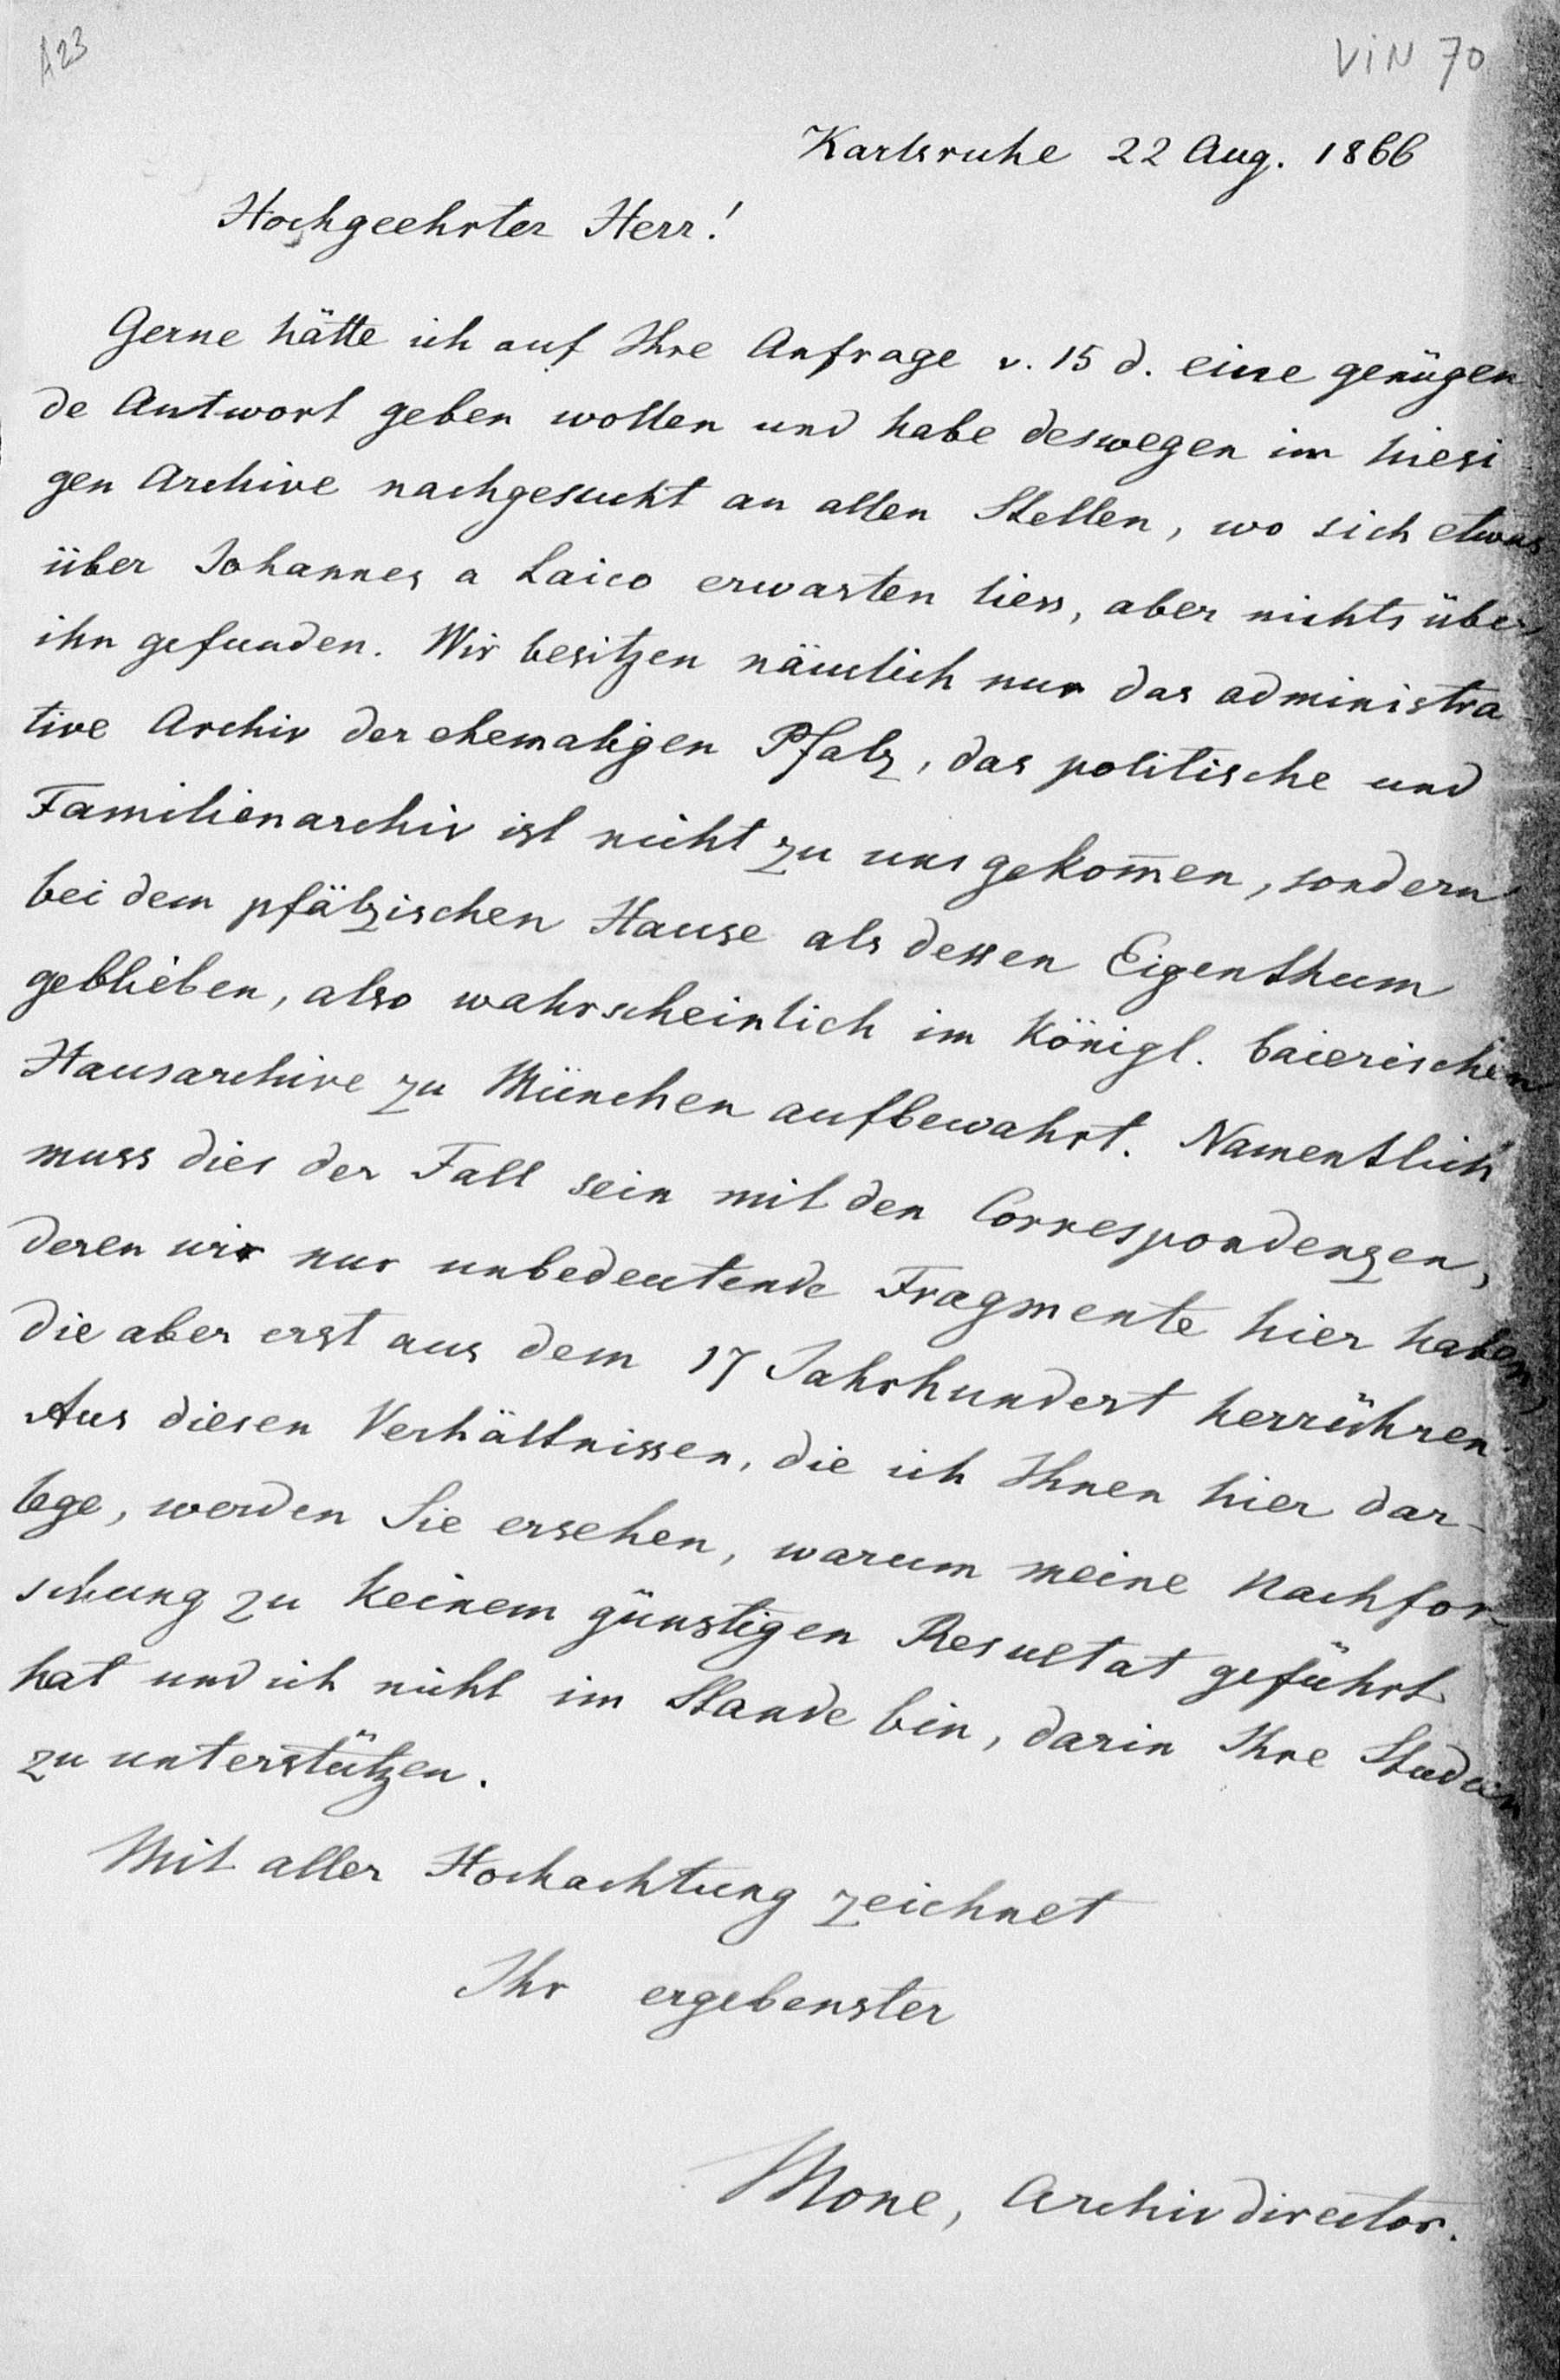 A23
VIN 70
Karlsruhe 22 Aug. 1866
Hochgeehrter Herr!
Gerne hätte ich auf Ihre Anfrage v. 15 d. eine genügen-
de Antwort geben wollen und habe deswegen im hiesi
gen Archive nachgesucht an allen Stellen, wo sich etwas
über Johannes a Laico erwarten liess, aber nichts über
ihn gefunden. Wir besitzen nämlich nur das administra-
tive Archiv der ehemaligen Pfalz, das politische und
Familienarchiv ist nicht zu uns gekom̄en, sondern
bei dem pfälzischen Hause als dessen Eigenthum
geblieben, also wahrscheinlich im Königl. baierischen
Hausarchive zu München aufbewahrt. Namentlich
muss dies der Fall sein mit den Correspondenzen,
deren wir nur unbedeutende Fragmente hier haben,
die aber erst aus dem 17 Jahrhundert herrühren.
Aus diesen Verhältnissen, die ich Ihnen hier dar-
lege, werden Sie ersehen, warum meine Nachfor-
schung zu keinem günstigen Resultat geführt
hat und ich nicht im Stande bin, darin Ihre Studien
zu unterstützen.
Mit aller Hochachtung zeichnet
Ihr ergebenster
Mone, Archivdirector.